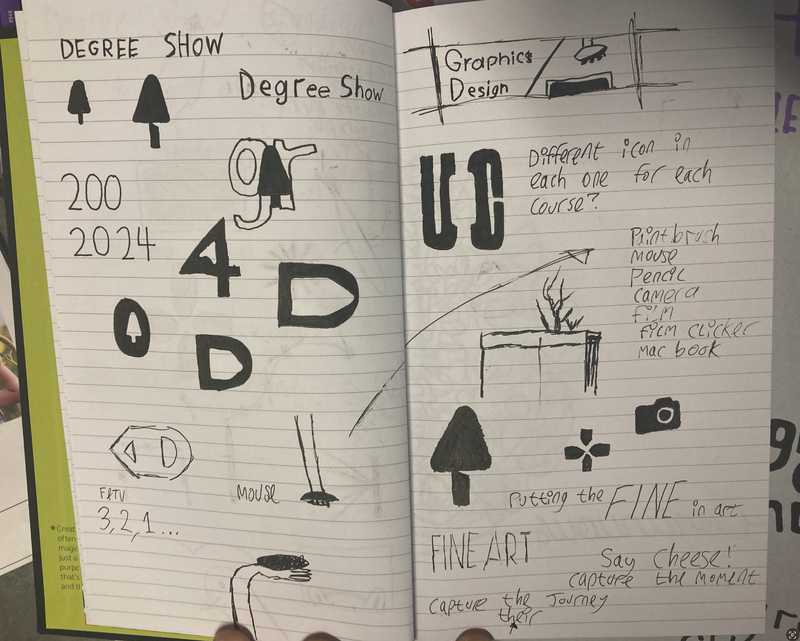 DEGREE SHOW
Degree Show
gr
200
2024
4
D
D
D
FTV
3,2,1...
mouse
Graphics
Design
UC
Different icon in
each one for each
course?
Paintbrush
mouse
Pencil
camera
film
film clicker
Mac book
Putting the FINE in art
FINE ART
Say cheese!
capture the moment
capture the Journey
their